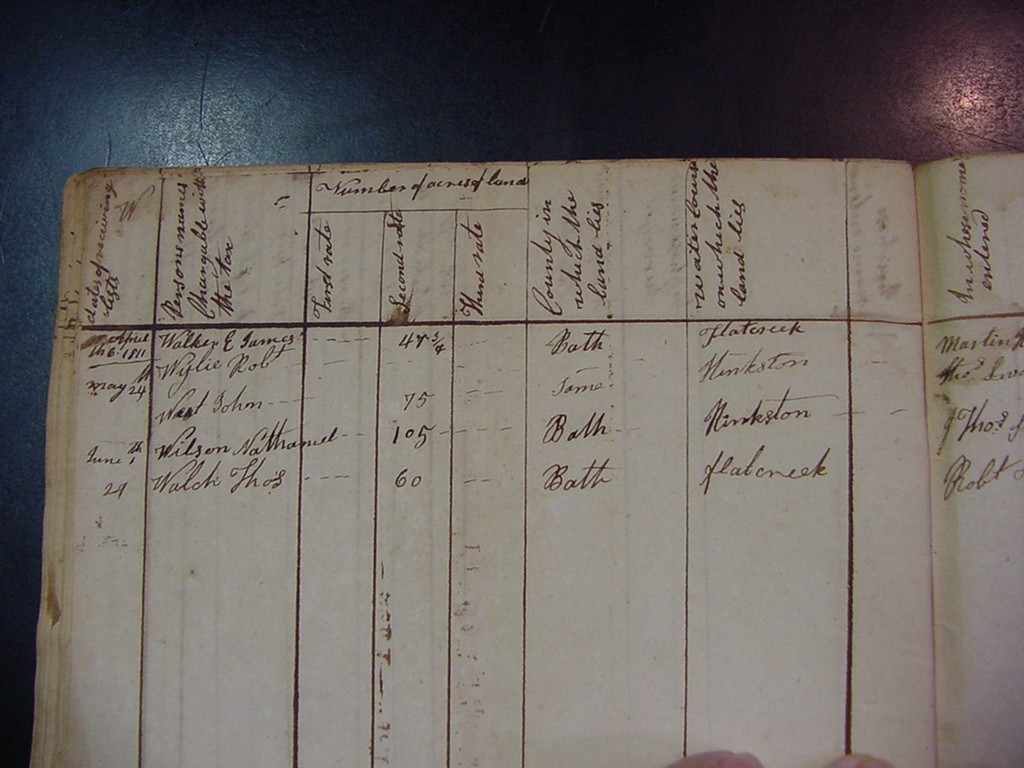 W
dates of receiving
lists
Persons names
Chargable with
the tax
Number of acres of land
First rate
Second rate
Third rate
County in
which the
land lies
water course
on which the
land lies
In whose name
entered
April
6th 1811 Walker E James 47 3/4 Bath flatcreek Martin
Wylie Robt
may 24th Same Hinkston
West John 75
Wilson Nathaniel 105 Bath Hinkston Thos.
June
24 Walch Thos 60 Bath flatcreek Robt